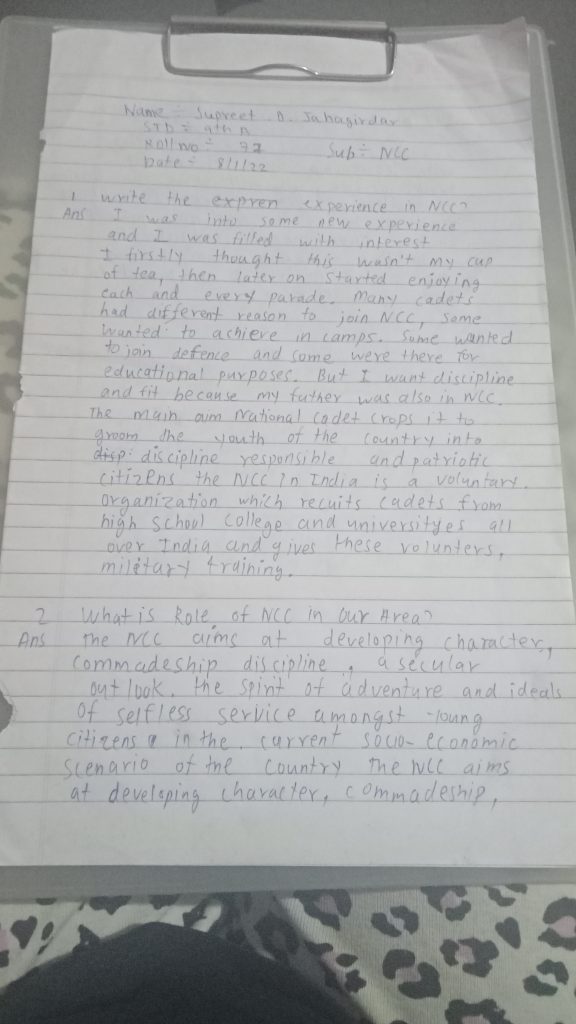 Name :- Supreet . D. Jahagirdar
STD :- 9th A
Roll no :-
Sub :- NCC
Date :- 8/1/22
1 write the expren experience in NCC?
Ans I was into some new experience
and I was filled with interest
I firstly thought this wasn't my cup
of tea, then later on started enjoying
each and every parade. Many cadets
had different reason to join NCC, some
wanted to achieve in camps. Some wanted
to join defence and some were there for
educational purposes. But I want discipline
and fit because my futher was also in NCC.
The main aim National Cadet Crops it to
groom the youth of the country into
disp: discipline responsible and patriotic
citizens the NCC in India is a voluntary
organization which recuits cadets from
high school college and universityes all
over India and gives these volunters,
miletary training.
2 What is Role of NCC in Our Area?
Ans The NCC aims at developing character,
Commadeship discipline, a secular
outlook, the spirit of adventure and ideals
of selfless service amongst young
citizens in the current socio-economic
scenario of the country The NCC aims
at developing character, commadeship,